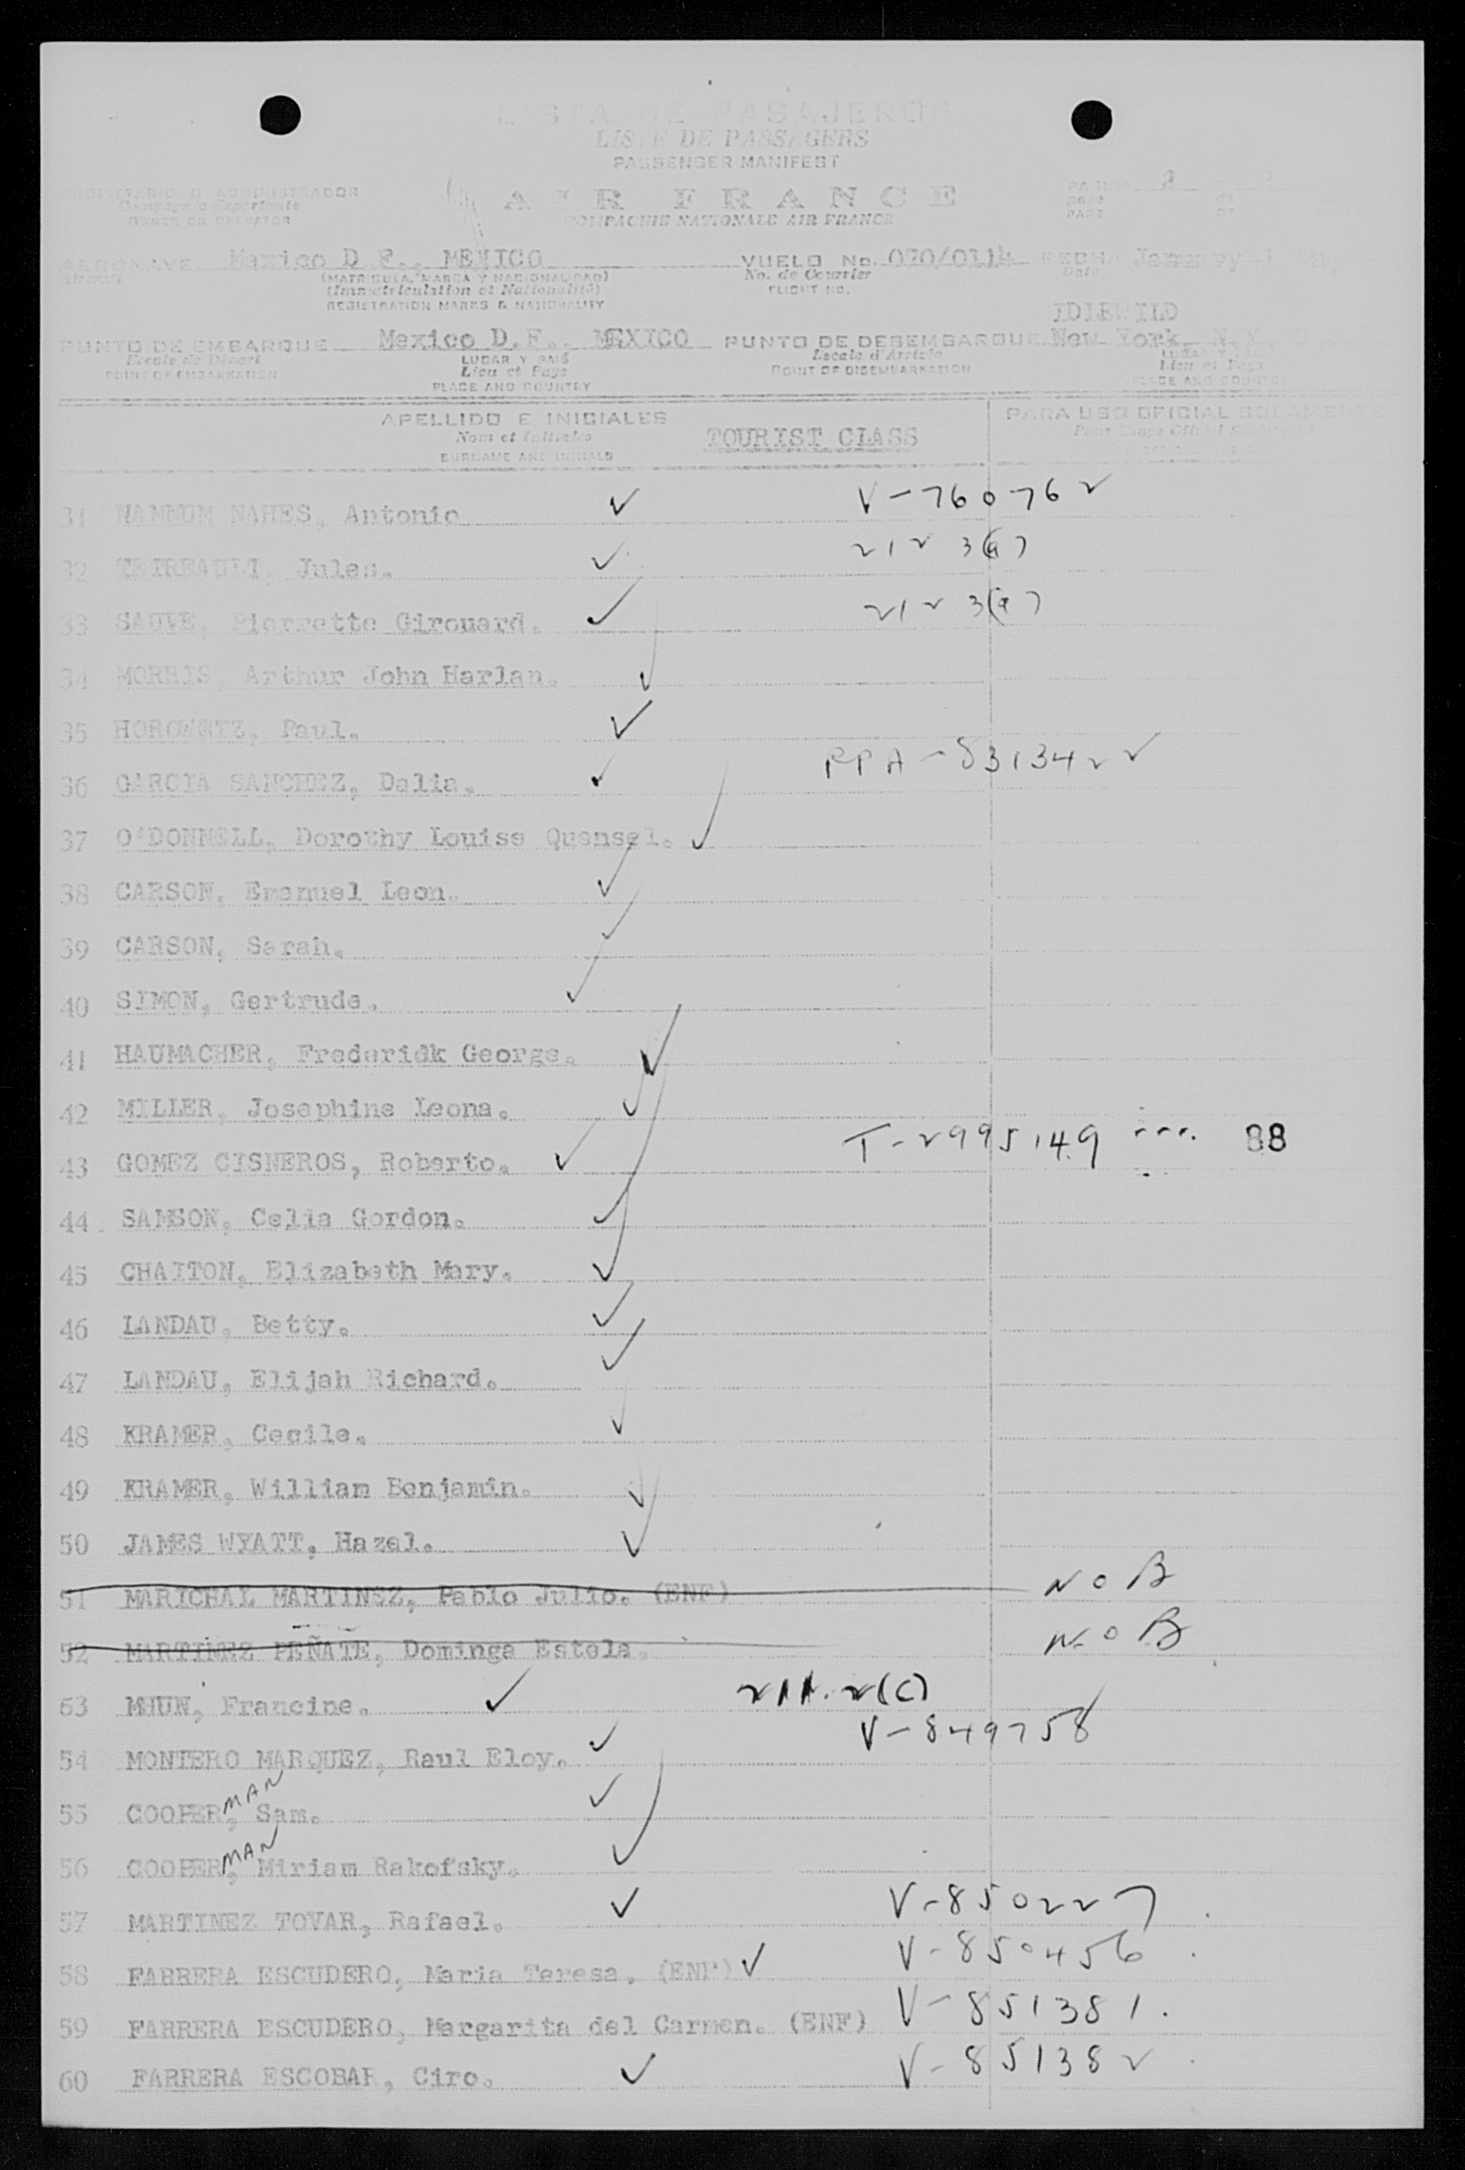 LISTA DE PASAJEROS
LISTE DE PASSAGERS
PASSENGER MANIFEST
AIR FRANCE
COMPAGNIE NATIONALE AIR FRANCE
PROPIETARIO O ADMINISTRADOR
OWNER OR OPERATOR
AERONAVE Mexico D F., MEXICO VUELO No. 070/011 FECHA January
(MATRICULA, MARCA Y NACIONALIDAD) No. de Courrier Date
(Immatriculation et Nationalité) FLIGHT NO.
REGISTRATION MARKS & NATIONALITY
IDLEWILD
PUNTO DE EMBARQUE Mexico D.F., MEXICO PUNTO DE DESEMBARQUE New York, N.Y.
Escale de Départ LUGAR Y PAIS Escale d'Arrivée LUGAR Y PAIS
POINT OF EMBARKATION Lieu et Pays POINT OF DISEMBARKATION Lieu et Pays
PLACE AND COUNTRY PLACE AND COUNTRY
APELLIDO E INICIALES PARA USO OFICIAL SOLAMENTE
Nom et Initiales TOURIST CLASS
SURNAME AND INITIALS
31 NAMNUM NAHES, Antonio V-760762
32 Jules. 212 3(a)7
33 SAUVE, Pierrette Girouard. 212 3(a)7
34 MORRIS, Arthur John Harlan.
35 HOROWITZ, Paul.
36 GARCIA SANCHEZ, Dalia. PPA-8313422
37 O'DONNELL, Dorothy Louise Quensel.
38 CARSON, Emanuel Leon.
39 CARSON, Sarah.
40 SIMON, Gertrude.
41 HAUMACHER, Frederidk George.
42 MILLER, Josephine Leona.
43 GOMEZ CISNEROS, Roberto. T-2995149 88
44 SAMSON, Celia Gordon.
45 CHAITON, Elizabeth Mary.
46 LANDAU, Betty.
47 LANDAU, Elijah Richard.
48 KRAMER, Cecile.
49 KRAMER, William Benjamin.
50 JAMES WYATT, Hazel.
51 MARICHAL MARTINEZ, Pablo Julio. (ENF) NOB
52 MARTINEZ PEÑATE, Dominga Estela. NOB
53 MHUN, Francine. 211.2(C)
54 MONTERO MARQUEZ, Raul Eloy. V-849758
55 COOPERMAN, Sam.
56 COOPERMAN, Miriam Rakofsky.
57 MARTINEZ TOVAR, Rafael. V-850227
58 FARRERA ESCUDERO, Maria Teresa. (ENF) V-850456
59 FARRERA ESCUDERO, Margarita del Carmen. (ENF) V-851381.
60 FARRERA ESCOBAR, Ciro. V-851382